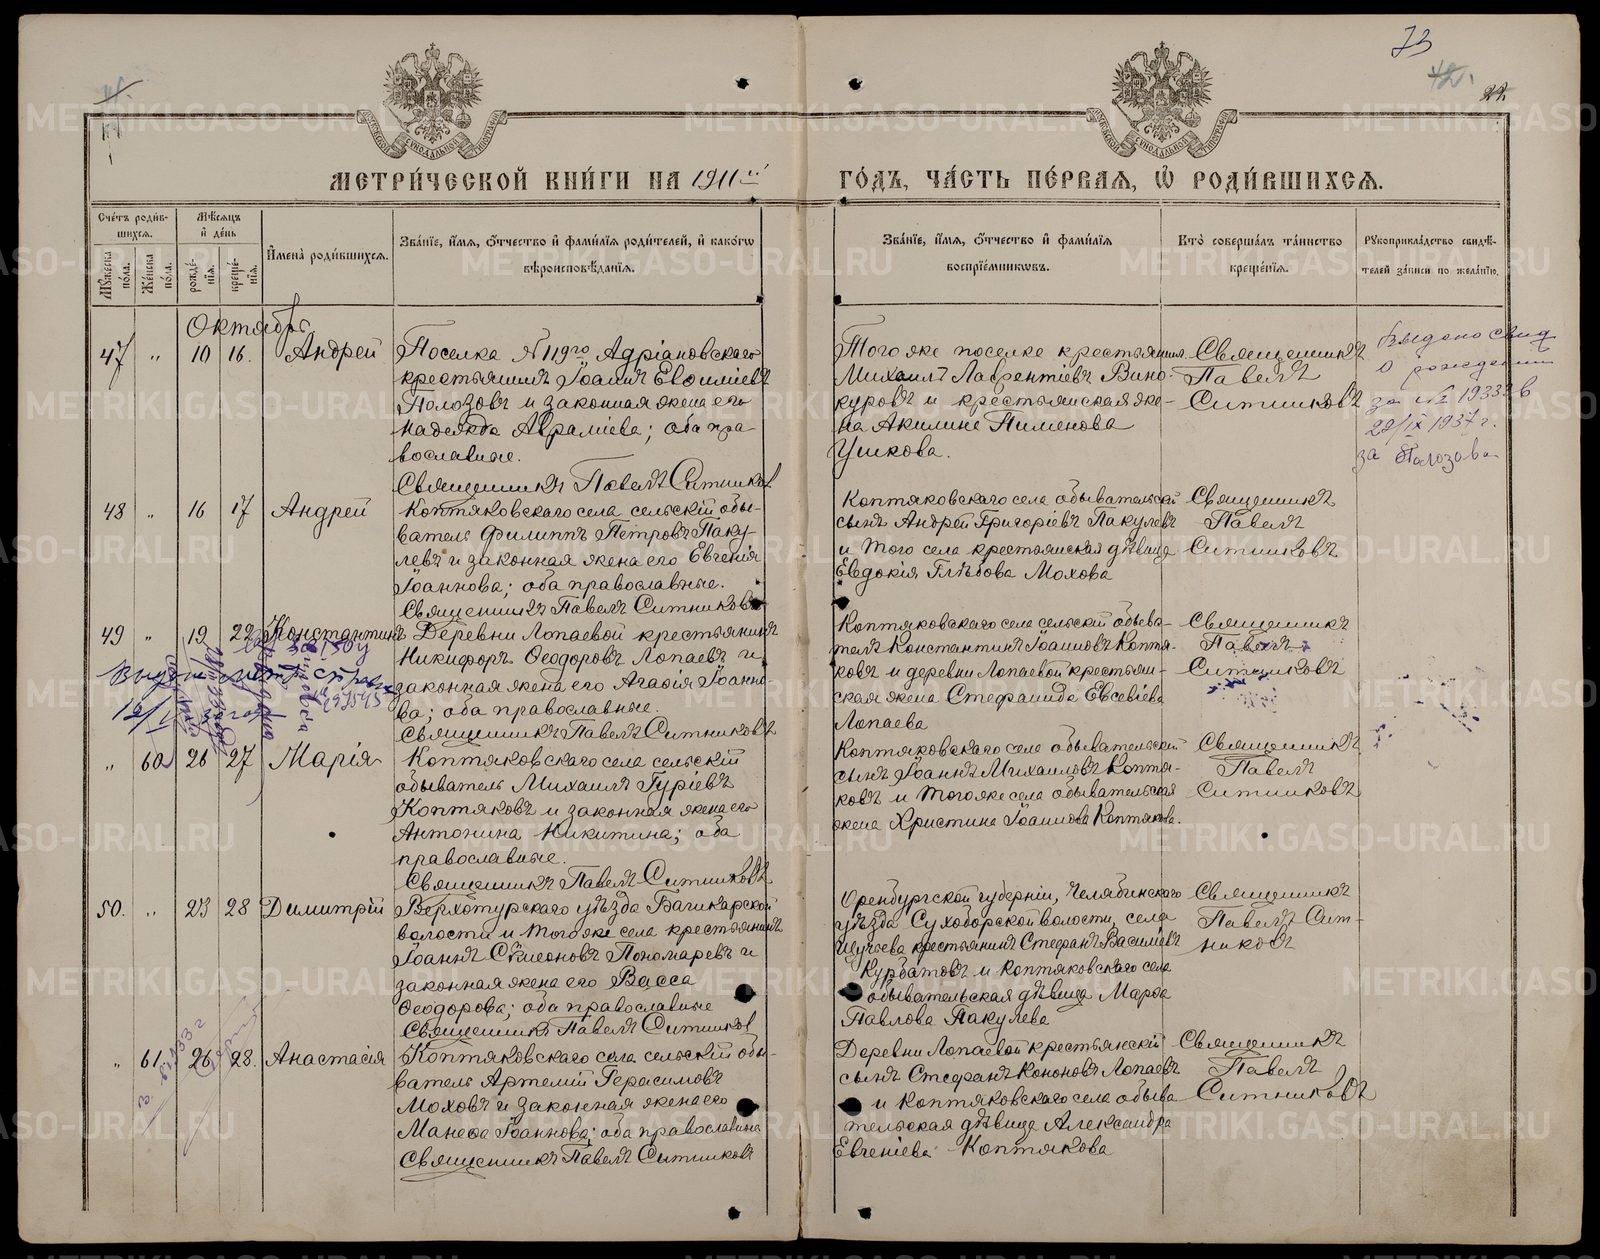 73
42.
22
МЕТРИ́ЧЕСКОЙ КНИ́ГИ НА 1911й
ГО́ДЪ, ЧА́СТЬ ПЕ́РВАЯ, Ѡ РОДИ́ВШИХСЯ.
Сче́тъ роди́в-
шихся.
Му́жеска по́ла.
Же́нска по́ла.
Мѣ́сяцъ
и҆ де́нь
рожде́-
нія.
креще́-
нія.
И҆мена̀ роди́вшихся.
Зва́ніе, и҆́мя, о҆́тчество и҆ фами́лія роди́телей, и҆ како́гѡ
вѣроисповѣ́данія.
Зва́ніе, и҆́мя, о҆́тчество и҆ фами́лія
воспріе́мниковъ.
Кто̀ соверша́лъ та́инство
креще́нія.
Рукоприкла́дство свидѣ́-
телей за́писи по жела́нію.
Октябрь
47 " 10 16. Андрей
Поселка №119го Адріановскаго
крестьянинъ Іоаннъ Евѳиміевъ
Полозовъ и законная жена его
Надежда Авраміева; оба пра
вославные.
Священникъ Павелъ Ситниковъ
Того же поселке крестьянинъ
Михаилъ Лаврентіевъ Вино-
куровъ и крестьянская же-
на Акилина Пименова
Ушкова.
Священникъ
Павелъ
Ситниковъ
Выдано свид
о рождении
за № 19333в
29/IX 1937 г.
за Полозова
48 " 16 17 Андрей
Коптяковскаго села сельскій обы-
ватель Филиппъ Петровъ Паку-
левъ и законная жена его Евгенія
Іоаннова; оба православные.
Священникъ Павелъ Ситниковъ
Коптяковскаго села обывательскій
сынъ Андрей Григоріевъ Пакулевъ
и того села крестьянская дѣвица
Евдокія Глѣбова Мохова
Священникъ
Павелъ
Ситниковъ
49 " 19 22 Константинъ
Деревни Лопаевой крестьянинъ
Никифоръ Ѳеодоровъ Лопаевъ и
законная жена его Агаѳія Іоанно-
ва; оба православные.
Священникъ Павелъ Ситниковъ
Коптяковскаго села сельскій обыва-
тель Константинъ Іоанновъ Коптя-
ковъ и деревни Лопаевой крестьян-
ская жена Стефанида Евсевіева
Лопаева
Священникъ
Павелъ
Ситниковъ
" 60 26 27 Марія
Коптяковскаго села сельскій
обыватель Михаилъ Гуріевъ
Коптяковъ и законная жена его
Антонина Никитина; оба
православные.
Священникъ Павелъ Ситниковъ
Коптяковскаго села обывательскій
сынъ Іоаннъ Михаиловъ Коптя-
ковъ и того же села обывательская
жена Христина Іоаннова Коптякова.
Священникъ
Павелъ
Ситниковъ
50. " 23 28 Димитрій
Верхотурскаго уѣзда Багикарской
волости и того же села крестьянинъ
Іоаннъ Сѵмеоновъ Пономаревъ и
законная жена его Васса
Ѳеодорова; оба православные
Священникъ Павелъ Ситниковъ
Оренбургской губерніи, Челябинскаго
уѣзда Сухоборской волости, села
Щучьева крестьянинъ Стефанъ Василіевъ
Курбатовъ и Коптяковскаго села
обывательская дѣвица Марѳа
Павлова Пакулева
Священникъ
Павелъ Сит-
никовъ
" 61. 26 28. Анастасія
Коптяковскаго села сельскій обы-
ватель Артемій Герасимовъ
Моховъ и законная жена его
Манефа Іоаннова; оба православные
Священникъ Павелъ Ситниковъ
Деревни Лопаевой крестьянскій
сынъ Стефанъ Кононовъ Лопаевъ
и Коптяковскаго села обыва
тельская дѣвица Александра
Евгеніева Коптякова
Священникъ
Павелъ
Ситниковъ
METRIKI.GASO-URAL.RU